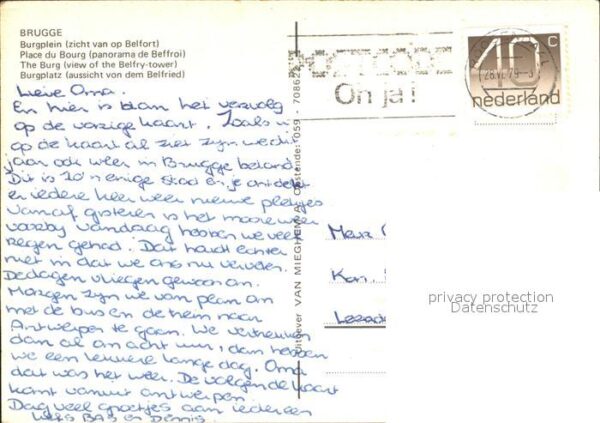 BRUGGE
Burgplein (zicht van op Belfort)
Place du Bourg (panorama de Beffroi)
The Burg (view of the Belfry-tower)
Burgplatz (aussicht von dem Belfried)
Lieve Oma.
En hier is dan het vervolg
op de vorige kaart. Zoals u
op de kaart al ziet zijn we dit
jaar ook weer in Brugge beland
Dit is zo'n enige stad en je ontdekt
er iedere keer weer nieuwe plekjes
Vanaf gisteren is het mooie weer
voorby vandaag hebben we veel
regen gehad. Dat houdt echter
niet in dat we ons nu vervelen.
De dagen vliegen gewoon om.
Morgen zijn we van plan om
met de bus en de trein naar
Antwerpen te gaan. We vertrekken
dan al om acht uur, dan hebben
we een lekkere lange dag. Oma
dat was het weer. De volgende kaart
komt vanuit antwerpen.
Dag veel groetjes aan iedereen
liefs BAS en Dennis.
Uitgever VAN MIEGHEM A. Oostende: 059 - 708622
Oh ja!
28 79-3
40 c
nederland
Mevr
Kon.
privacy protection
Datenschutz